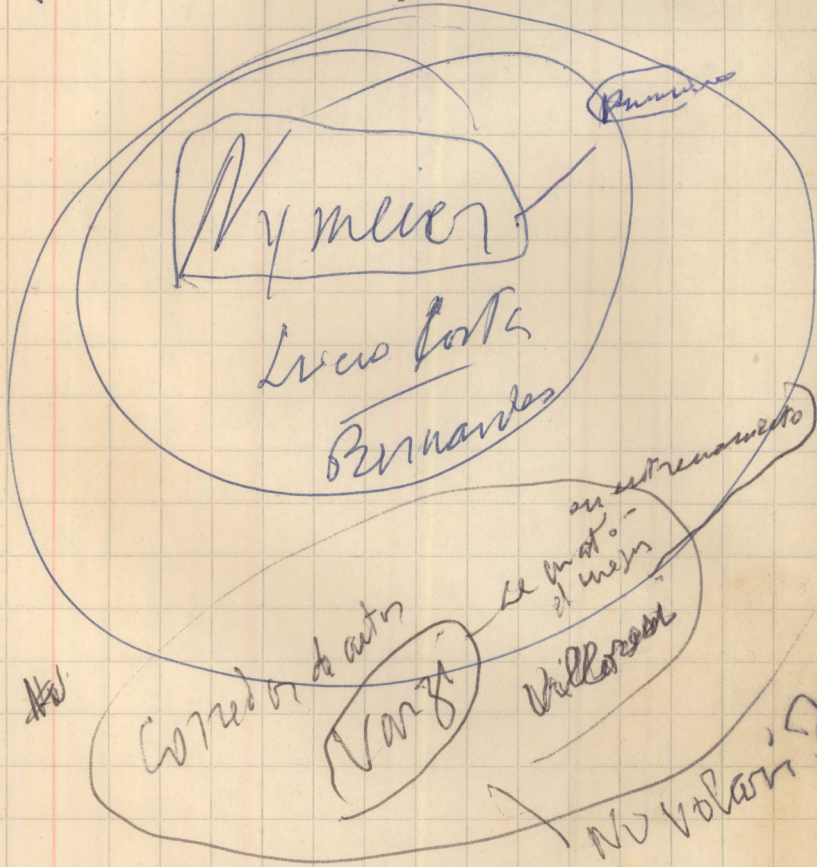 Nymeier
Lucio Costa
Bernardes
en entrenamiento
se mató -
el mejor
Corredor de autos
Varzi
Villoresi
No volari?